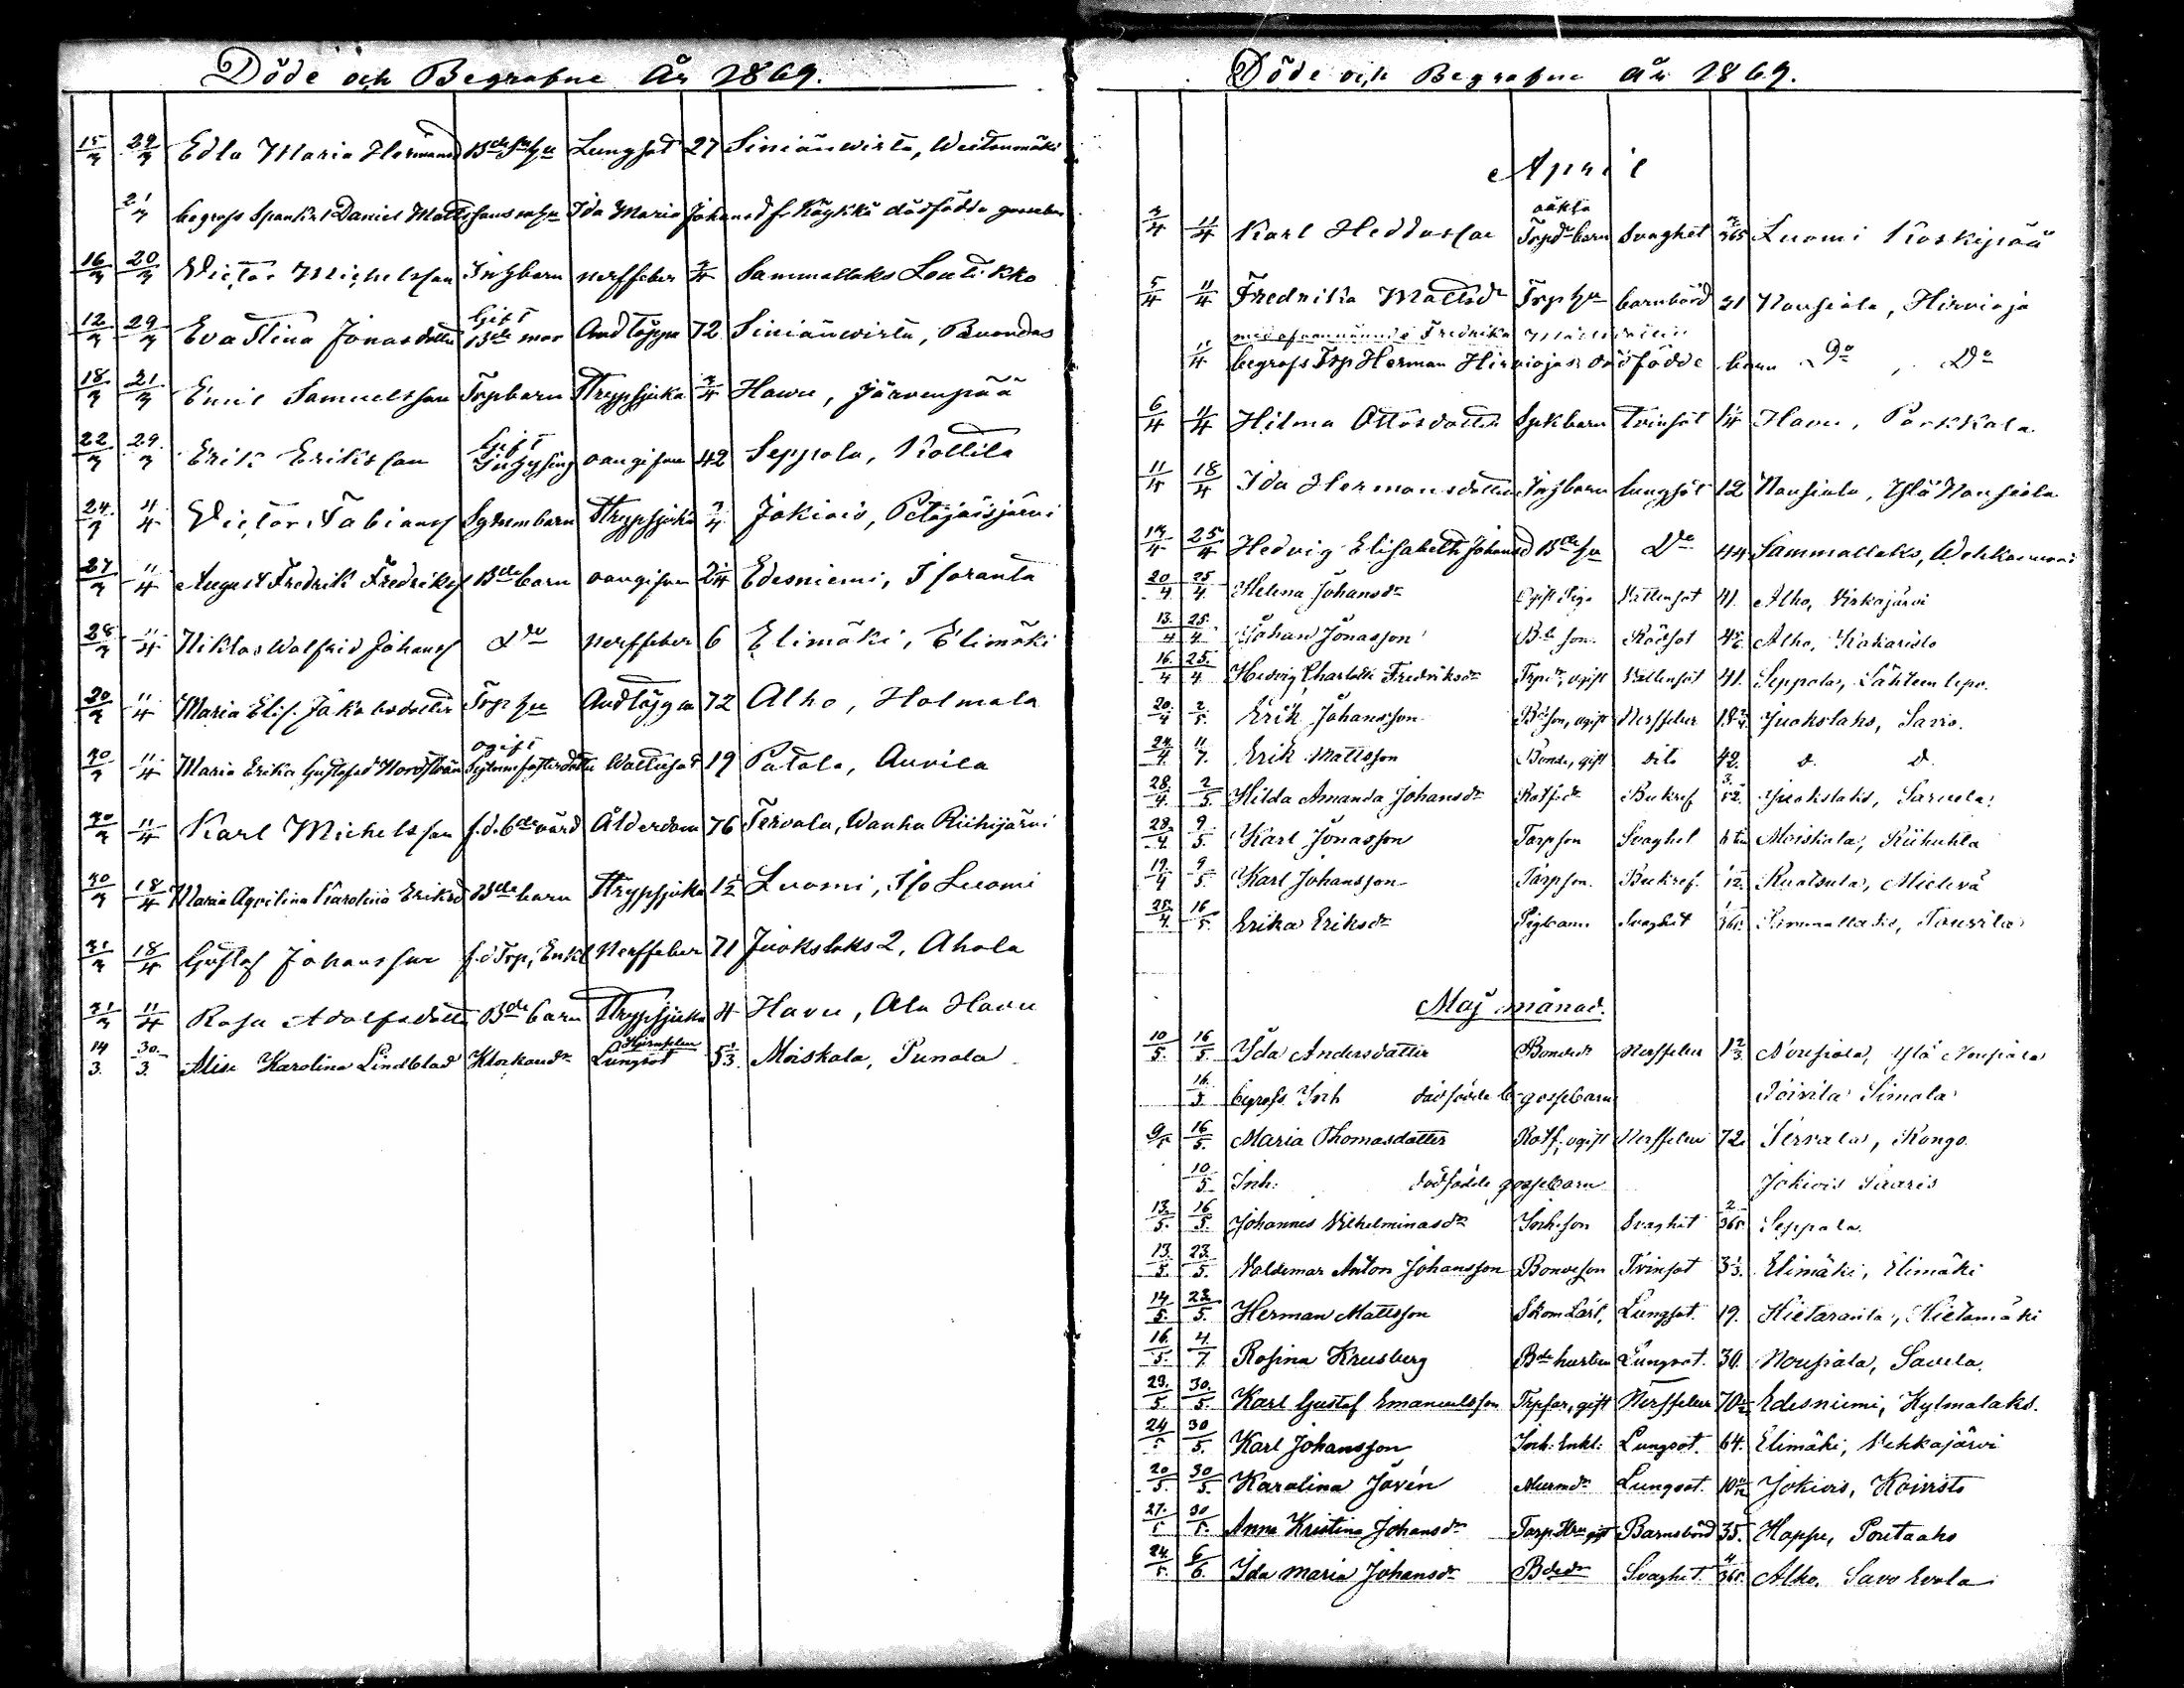 Döde och Begrafne År 1869.
15/3 29/3 Edla Maria Hermansd Bde hu Lungsot 27 Siniänwirta, Weitonmäki
21/3 begrofs Spankl Daniel Matts hu Ida Maria Johansd fr Käykkä dödfödda gossebarn
16/3 20/3 Victor Michelsson Inhbarn nerffeber 3/4 Sammallaks Loutikko
Gift
12/3 29/3 Eva Stina Jonasdotter Bde mor Andtäppa 72 Siniänwirta, Buondas
18/3 21/3 Emil Samuelsson Torpbarn Strypsjuka 3/4 Hawu, Järvenpää
Gift
22/3 29/3 Erik Eriksson oangifven 42 Seppola, Kottila
24/3 11/4 Victor Fabianss Sytnmbarn Strypsjuka 3/4 Jokiois, Petäjäisjärvi
27/3 11/4 August Fredrik Fredrikss Bde barn oangifven 2 1/4 Edesniemi, Isoranta
28/3 11/4 Niklas Walfrid Johanss do Nerffeber 6 Elimäki, Elimäki
30/3 11/4 Maria Elis. Jakobsdotter Torp hu Andtäppa 72 Alho, Holmala
ogift
30/3 11/4 Maria Erika Gustafsd Nordström Wattusot 19 Patala, Auvila
30/3 11/4 Karl Michelsson f.d. bdevärd Ålderdom 76 Tervala, Wanha Riihijärvi
30/3 18/4 Maria Aqvilina Karolina Eriksd Bde barn Strypsjuka 1 1/2 Luomi, Iso Luomi
31/3 18/4 Gustaf Johansson f.d Torp, Enkl Nerffeber 71 Juokslaks 2, Ahola
31/3 11/4 Rosa Adolfsdotter Bde barn Strypsjuka 4 Havu, Ala Havu
14/3. 30/3. Alise Karolina Lindblad Klockaredr Lungsot 5 1/3. Moiskala, Punola
Döde och Begrafne år 1869.
April
oäkta
3/4 11/4 Karl Heddasson Torpdr barn Svaghet 3/365 Luomi Koskipää
5/4 11/4 Fredrika Mattsdr Torp hu barnbörd 31 Nousiala, Hirvioja
med ofvannämnde Fredrika
11/4 begrofs Torp Herman Hirviojas dödfödde barn Do, Do
6/4 11/4 Hilma Ottosdotter Spkbarn Tvinsot 1 1/4 Havu, Porkkala
11/4 18/4 Ida Hermansdotter Inhbarn lungsot 12 Nousiala, Ylä Nousiala
17/4 25/4 Hedvig Elisabeth Johansd Bde hu Do 44 Sammallaks, Wehkasmaa
20/4 25/4. Helena Johansdr Ogift Piga Vattensot 41. Alho, Kirkajärvi
13./4 25./4. Johan Jonasson Bde son. Rödsot Alho, Kakaristo
16./4 25./4 Hedvig Charlotta Fredriksdr Trpdr, ogift Vattensot 41. Seppola, Lähteenlepo.
20./4 2./5. Erik Johansson Bdeson, ogift Nerffeber Juokslaks, Savio.
24/4. 11/7. Erik Mattsson Bonde, gift dito 42. d. d.
28./4. 2/5. Hilda Amanda Johansdr Rotfdr Bukref 3./12. Juokslaks, Saruela.
28./4. 9/5. Karl Jonasson Torpson Svaghet 6 tim Moiskala, Riihuhta
19./4 9/5. Karl Johansson Torpson. Bukref. 1/12. Ruotsula, Mietevä
25./4. 16/5. Erika Eriksdr Pigbarn Svaghet 1/365. Sammallaks, Touvila
Maj månad.
10/5. 16/5. Ida Andersdotter Bondedr Nerffeber 1 2/3. Nousiala, Ylä Nousiala
16./5. begrofs Inh dödfödde gossebarn Toivila Simola
9/5 16/5. Maria Thomasdotter Rotf, ogift Nerffeber 72. Tervala, Kongo.
10/5. Inh: dödfödde gossebarn Jokiois Saaris
13./5. 16/5. Johannes Vilhelminasdr Inh.son Svaghet 2/365. Seppola.
13./5. 23./5. Valdemar Anton Johansson Bondeson Tvinsot 3 1/3. Elimäki, Elimäki
14/5. 23./5. Herman Mattsson Skom.Lärl. Lungsot. 19. Hietaranta, Hietamäki
16./5. 4/7. Rosina Krusberg Bde hustru Lungsot. 30. Nousiala, Savela.
23./5. 30./5. Karl Gustaf Emanuelsson Trpfar, gift Nerffeber 70 Edesniemi, Kylmalaks.
24/5 30/5. Karl Johansson Inh: Enkl: Lungsot. 64. Elimäki, Vehkajärvi
20/5. 30/5. Karolina Javén Murmdr Lungsot. Jokiois, Koivisto
27./5 30/5. Anna Kristina Johansdr Torp Hru gift Barnsbörd 35. Hoppu, Poutaaho
24./5. 6/6. Ida Maria Johansdr Bdedr Svaghet 4/365. Alho, Savo Evola